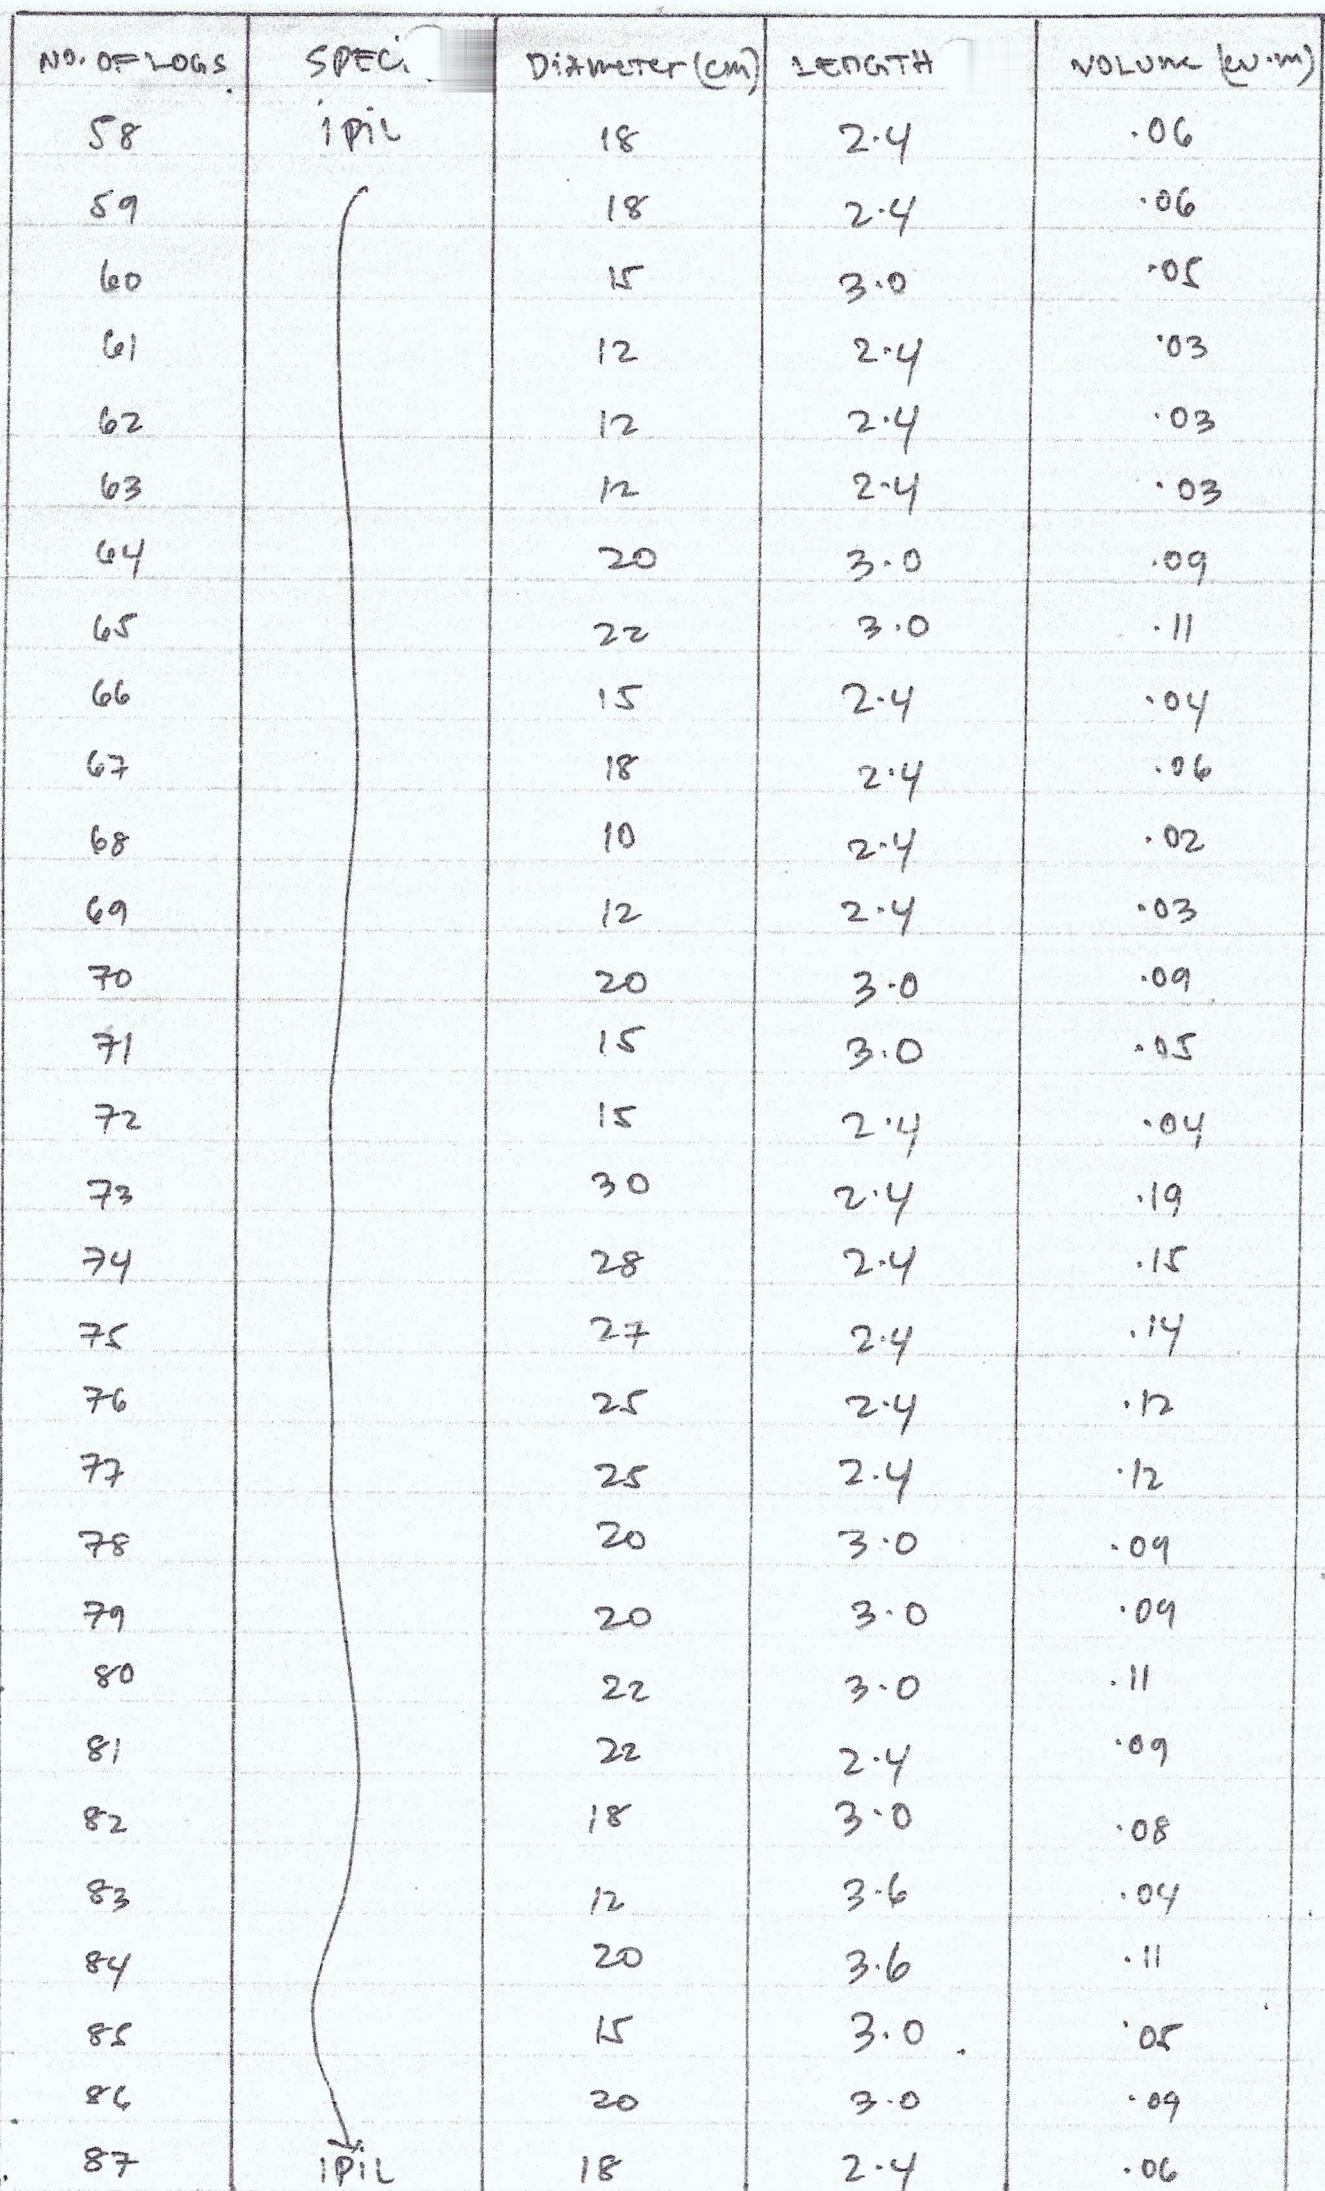 NO. OF LOGS SPECI DiAmeTer (cm) LENGTH VOLUME (cu.m)
58 ipiL 18 2.4 .06
59 18 2.4 .06
60 15 3.0 .05
61 12 2.4 .03
62 12 2.4 .03
63 12 2.4 .03
64 20 3.0 .09
65 22 3.0 .11
66 15 2.4 .04
67 18 2.4 .06
68 10 2.4 .02
69 12 2.4 .03
70 20 3.0 .09
71 15 3.0 .05
72 15 2.4 .04
73 30 2.4 .19
74 28 2.4 .15
75 27 2.4 .14
76 25 2.4 .12
77 25 2.4 .12
78 20 3.0 .09
79 20 3.0 .09
80 22 3.0 .11
81 22 2.4 .09
82 18 3.0 .08
83 12 3.6 .04
84 20 3.6 .11
85 15 3.0 .05
86 20 3.0 .09
87 iPiL 18 2.4 .06